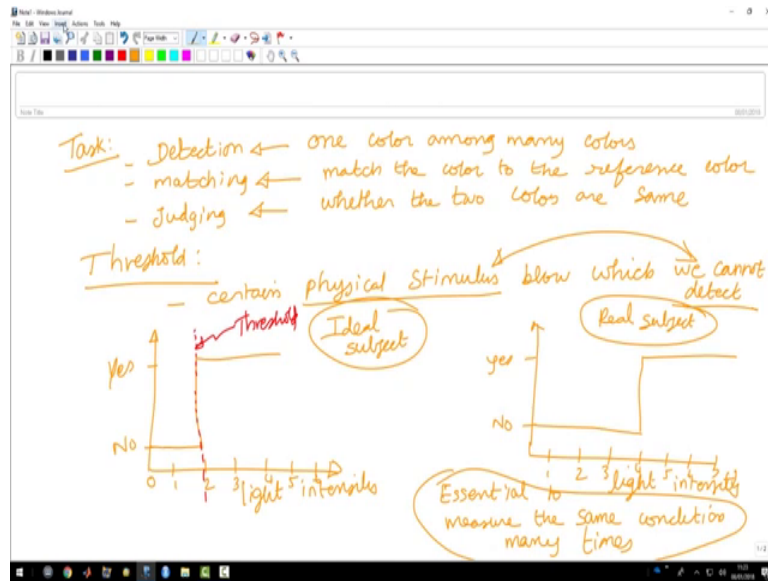 Note1 - Windows Journal
File Edit View Insert Actions Tools Help
Page Width
B I
Note Title
08/01/2018
Task: - Detection ← one color among many colors
- matching ← match the color to the reference color
- Judging ← whether the two colos are same
Threshold:
- certain physical stimulus blow which we cannot
detect
Threshold
Ideal
subject
Real subject
Yes
No
0 1 2 3 4 5
light intensities
yes
No
1 2 3 4 5
light intensity
Essential to
measure the same condition
many times
1/2
11:23
08/01/2018